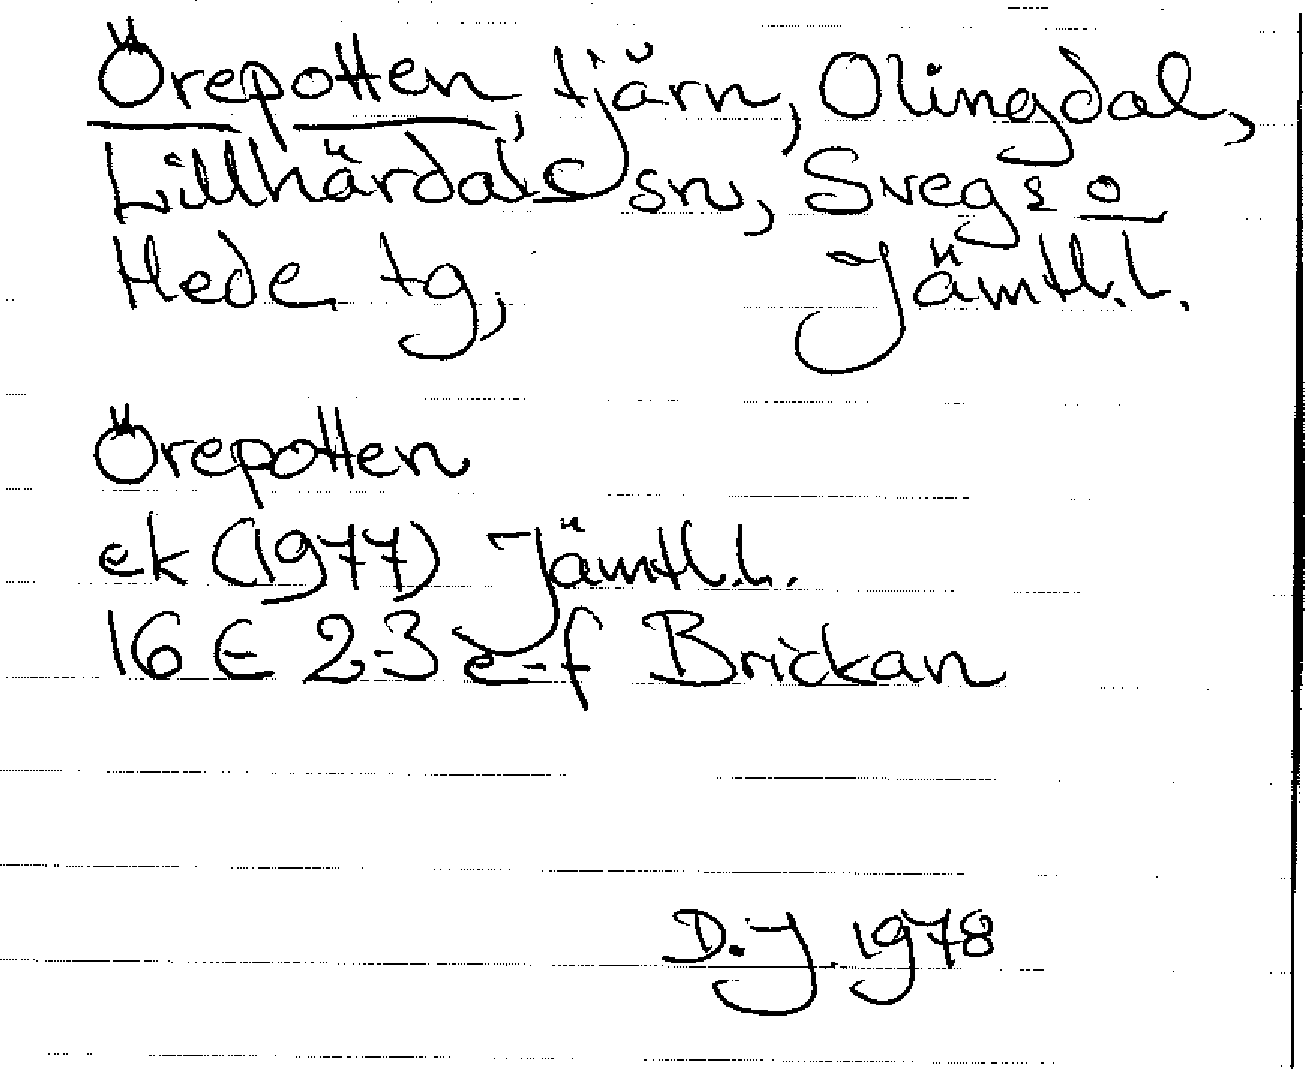 Örepotten, tjärn, Olingdal,
Lillhärdals sn, Svegs o
Hede tg, Jämtl.l.
Örepotten
ek (1977) Jämtl.l.
16 E 2-3 e-f Brickan
D.J. 1978